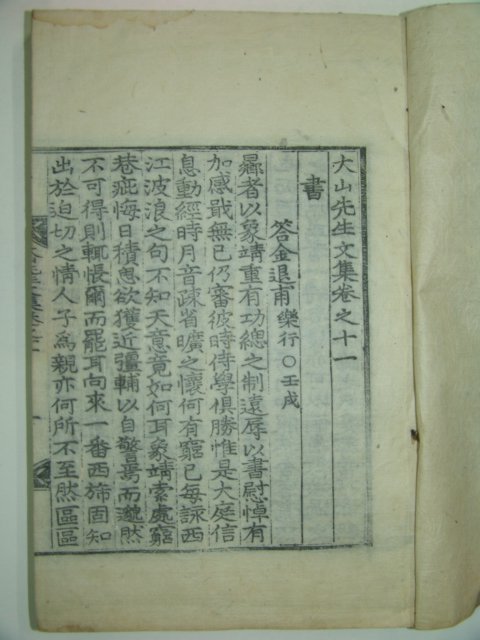 大山先生文集卷之十一
書
答金退甫 樂行○壬戌
曏者以象靖重有功緦之制遠辱以書慰悼有
加感戢無已仍審彼時侍學俱勝惟是大庭信
息動經時月音疎省曠之懷何有窮已每詠西
江波浪之句不知天意竟如何耳象靖索處窮
巷疵悔日積思欲獲近彊輔以自警焉而邈然
不可得則輒悵爾而罷耳向來一番西旆固知
出於迫切之情人子爲親亦何所不至然區區